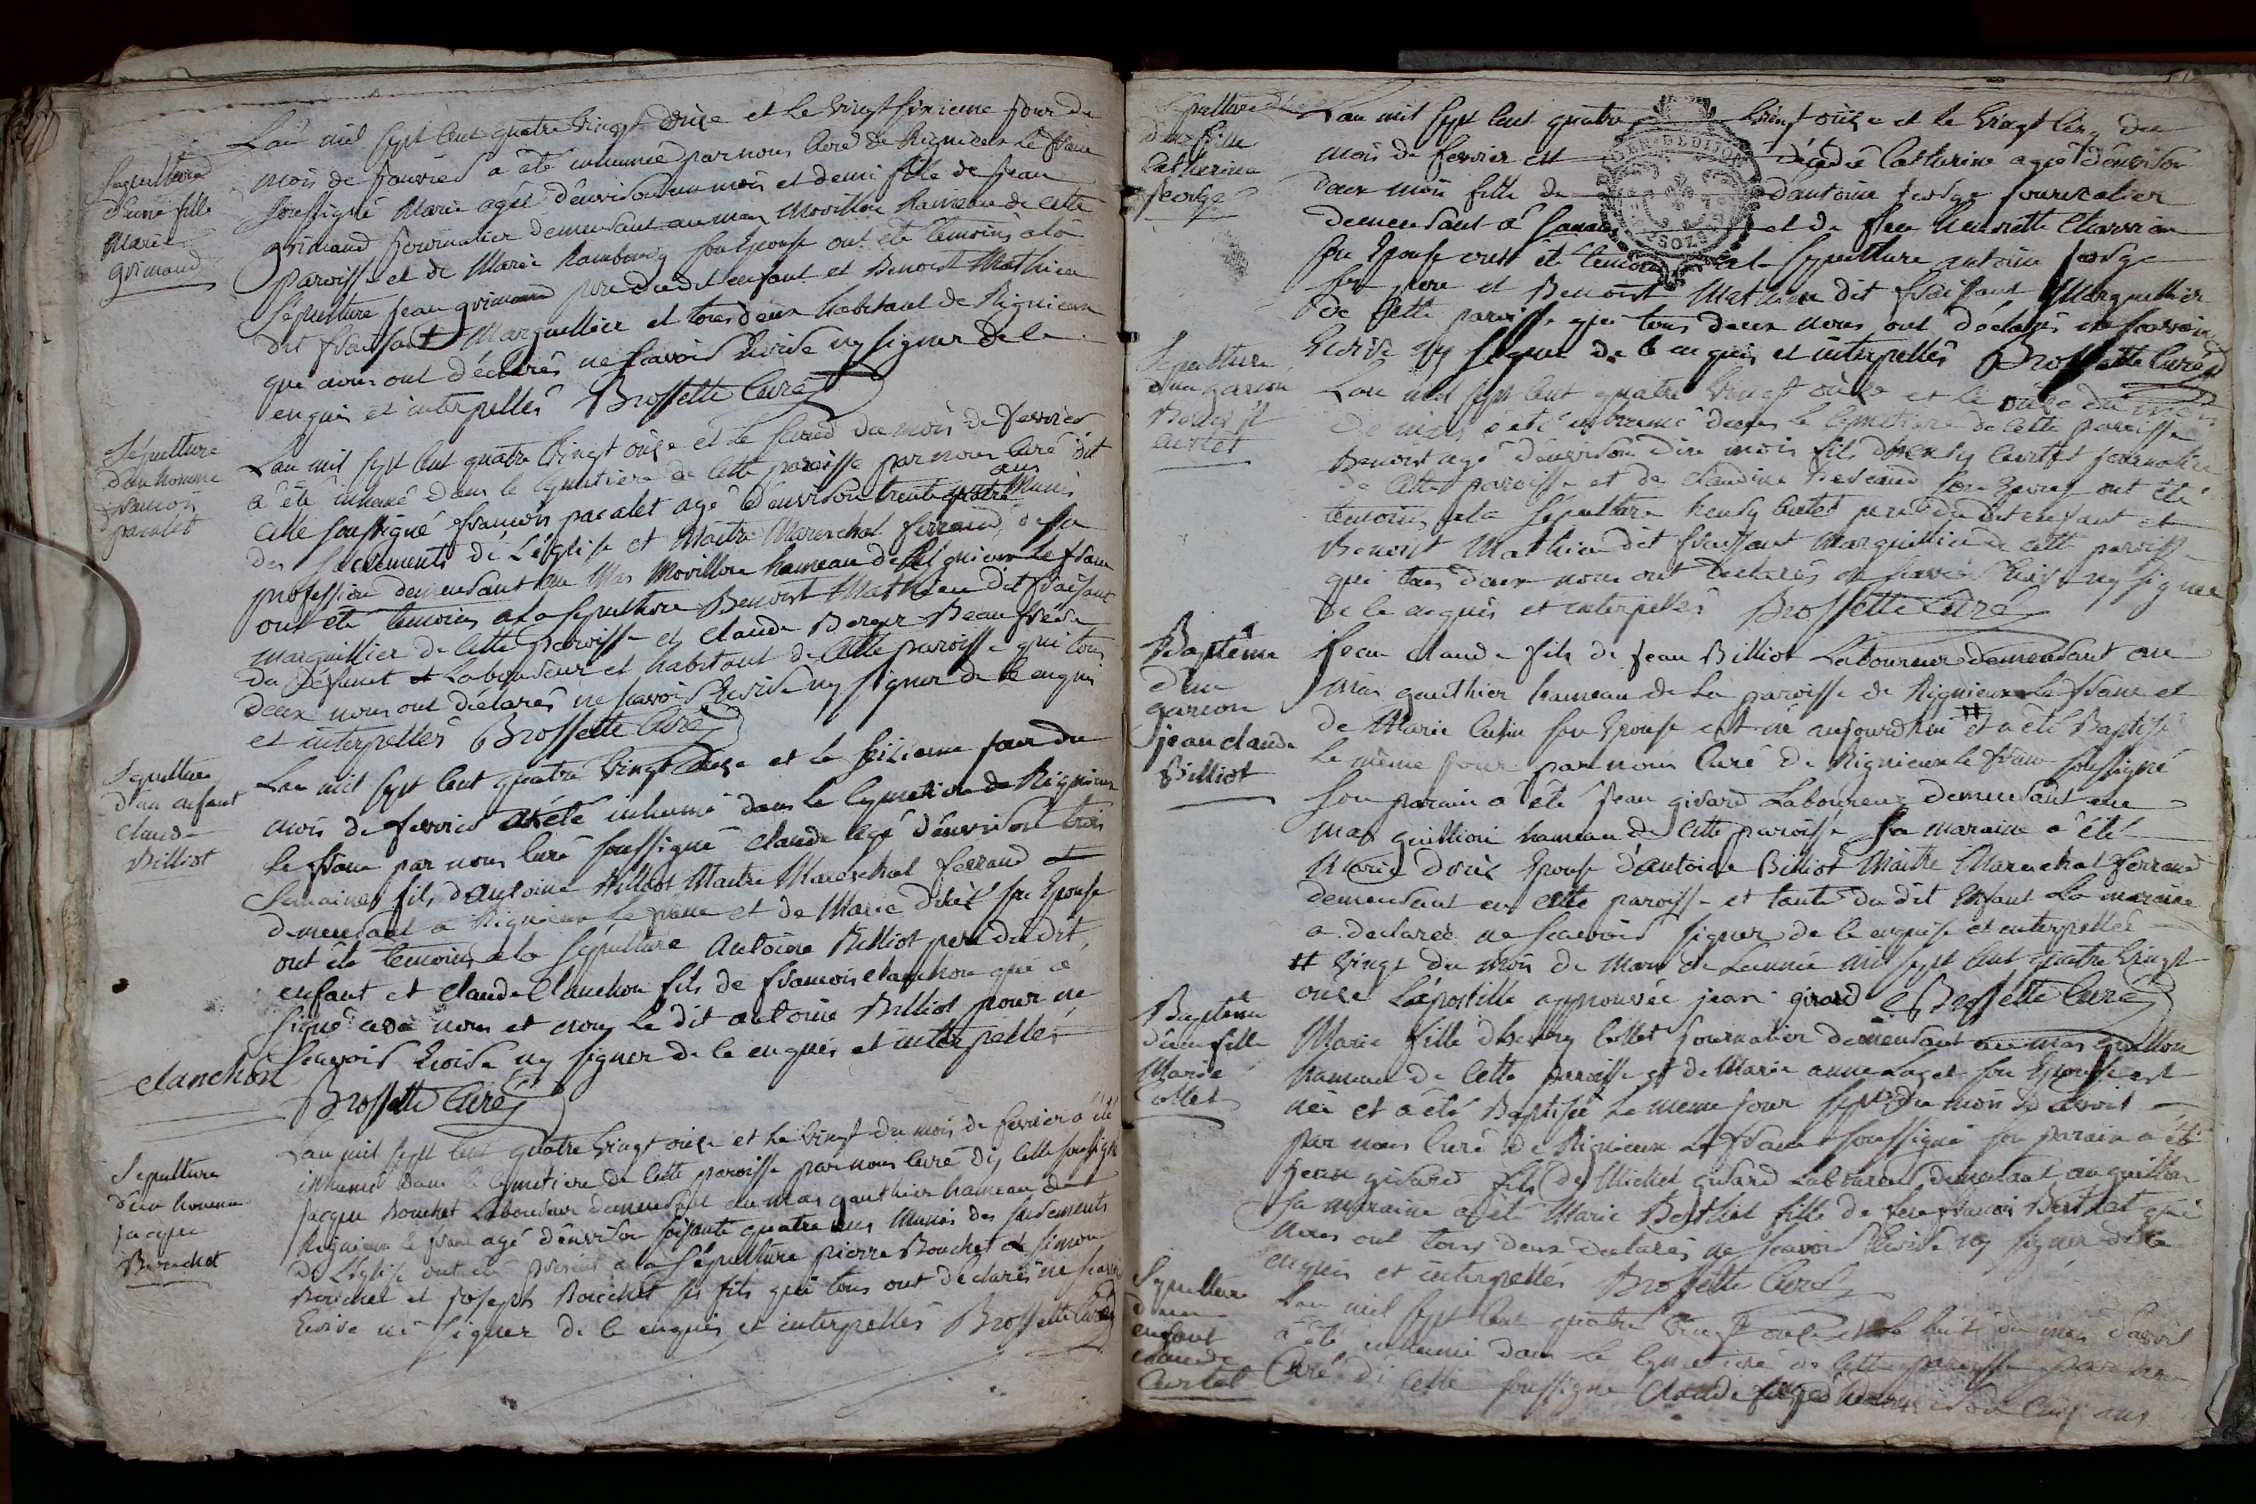 Sepulture
d'une fille
Marie
grimand
L'an mil sept cent quatre vingt onze et le vingt sixieme jour du
mois de janvier a été inhumée par nous curé de Rignieux le franc
soussigné Marie agée d'environ un mois et demi fille de jean
grimand journalier demeurant au mas Morillon hameau de cette
paroisse et de Marie son Epouse ont été temoins a la
sépulture jean grimand pere du dit enfant et Benoist Mathieu
dit fraisant Marguillier et tous deux habitant de Rignieux
qui nous ont déclarés ne scavoir Ecrire ny signer de ce
enquis et interpellés Brossette Curé
Sépulture
d'un homme
francois
pacalet
L'an mil sept cent quatre vingt onze et le second du mois de fevrier
a été inhumé dans le cymetiere de cette paroisse par nous curé dit
celle soussigné francois pacalet agé d'environ trente quatre ans Munis
des sacrements de L'église et Maitre Mareschal ferrand de sa
profession demeurant au Mas Morillon hameau de Rignieux le franc
ont été temoins a la sepulture Benoist Mathieu dit fraisant
marguillier de cette paroisse et claude Berger Beau frere
du défunt et Laboureur et habitant de cette paroisse qui tous
deux nous ont déclarés ne scavoir Ecrire ny signer de ce enquis
et interpellés Brossette Curé
Sepulture
d'un enfant
claude
Billiot
L'an mil sept cent quatre vingt onze et le seizieme jour du
mois de fevrier a été inhumé dans le cymetiere de Rignieux
le franc par nous curé soussigné claude agé d'environ trois
semaines fils d'antoine Billiot Maitre Mareschal ferrand
demeurant a Rignieux le franc et de Marie son Epouse
ont été temoins a la sepulture Antoine Billiot pere du dit
enfant et claude clanchon fils de francois clanchon qui a
signé avec nous et non le dit antoine Billiot pour ne
scavoir Ecrire ny signer de ce enquis et interpellés
clanchon
Brossette Curé
Sepulture
d'un homme
jacque
Bouchet
L'an mil sept cent quatre vingt onze et le vingt du mois de fevrier a été
inhumé dans le cymetiere de cette paroisse par nous curé d'y celle soussigné
jacque Bouchet Laboureur demeurant au mas gauthier hameau de
Rignieux le franc agé d'environ soixante quatre ans Munis des sacrements
de L'église ont été présent a la sépulture pierre Bouchet simon
Bouchet et joseph Bouchet ses fils qui tous ont déclarés ne scavoir
Ecrire ni signer de ce enquis et interpellés Brossette Curé
Sepulture
d'une fille
Catherine
george
L'an mil sept cent quatre vingt onze et le vingt cinq du
mois de fevrier est décédée Catherine agée d'environ
deux mois fille de d'antoine george journalier
demeurant à et de feue henriette
son Epouse ont été temoins a la sepulture antoine george
son pere et Benoist Mathieu dit fraisant Marguillier
de cette paroisse qui tous deux nous ont déclarés ne scavoir
Ecrire ny signer de ce enquis et interpellés Brossette Curé
Sepulture
d'un garcon
Benoist
curtet
L'an mil sept cent quatre vingt onze et le onze du mois
de mars a été inhumé dans le cymetiere de cette paroisse
Benoist agé d'environ dix mois fils d'henry curtet journalier
de cette paroisse et de claudine son Epouse ont été
temoins a la sépulture henry curtet pere du dit enfant et
Benoist Mathieu dit fraisant Marguillier de cette paroisse
qui tous deux nous ont declarés ne scavoir Ecrire ny signer
de ce enquis et interpellés Brossette Curé
Baptême
d'un
garcon
jean claude
Billiot
Jean claude fils de jean Billiot Laboureur demeurant au
mas gauthier hameau de la paroisse de Rignieux le franc et
de Marie cusin son Epouse est né aujourdhui # et a été Baptisé
le même jour par nous Curé de Rignieux le franc soussigné
son parain a été jean girard Laboureur demeurant au
mas guillion hameau de cette paroisse sa maraine a été
Marie Epouse d'antoine Billiot Maitre Mareschal ferrand
demeurant en cette paroisse et tante du dit Enfant la maraine
a declaree ne scavoir signer de ce enquise et interpellée
# vingt du mois de Mars de l'année mil sept cent quatre vingt
onze L'apostille approuvée jean girard Brossette Curé
Baptême
d'une fille
Marie
collet
Marie fille d'henry collet journalier demeurant au mas guillion
hameau de cette paroisse et de Marie anne son Epouse est
née et a été Baptisée le meme jour sept du mois d'avril
par nous Curé de Rignieux le franc soussigné son parain a été
jean girard fils de Michel girard Laboureur demeurant au guillion
sa maraine a été Marie Berthet fille de feu francois Berthet qui
nous ont tous deux declarés ne scavoir Ecrire ny signer de ce
enquis et interpellés Brossette Curé
Sepulture
d'un
enfant
claude
Curtet
L'an mil sept cent quatre vingt onze et le huit du mois d'avril
a été inhumé dans le cymetiere de cette paroisse par nous
Curé di celle soussigné Claude agé d'environ cinq ans